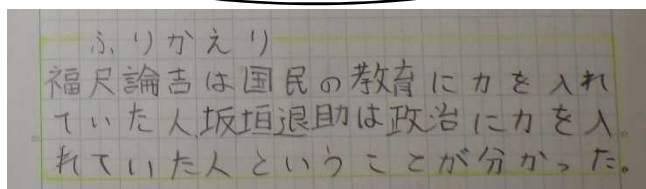 ふりかえり
福尺論吉は国民の教育に力を入れ
ていた人.坂垣退助は政治に力を入
れていた人ということが分かった。